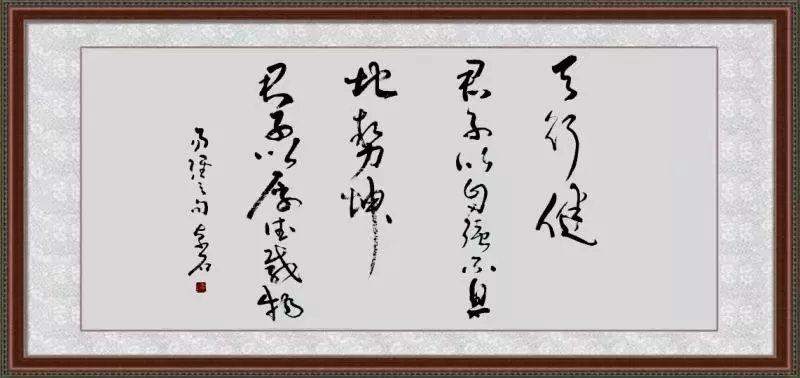 天行健
君子以自強不息
地勢坤
君子以厚德載物
易經之句